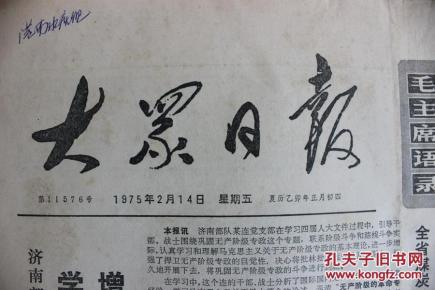 大众日报
第11576号 1975年2月14日 星期五 夏历乙卯年正月初四
毛主席语录
本报讯 济南部队某连党支部在学习四届人大文件过程中，引导干
部、战士围绕巩固无产阶级专政这个专题，联系阶级斗争和路线斗争实
际，认真学习和理解马克思主义关于无产阶级专政的基本理论，进一步增
强了捍卫无产阶级专政的自觉性，决心将批林批
久地开展下去，将巩固无产阶级专政的斗争进行
在学习中，这个连的干部、战士分析了国际国
济南部
学
增
全省煤炭
"无产阶级的革命专
孔夫子旧书网